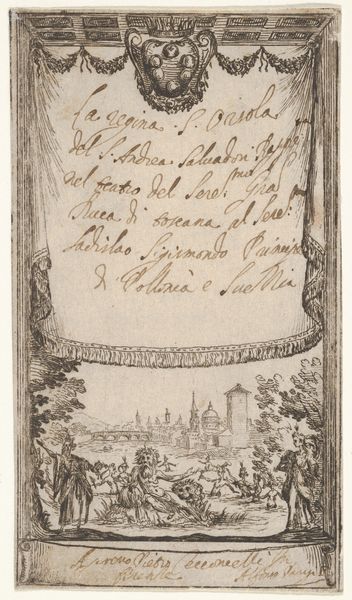 La regina S. Orsola
del S. Andrea Salvadori
nel teatro del Sere.mo Gra
Duca di toscana al Sere.
Ladislao Sigismondo Principe
di Pollonia e Suettia
Pietro Cecconcelli